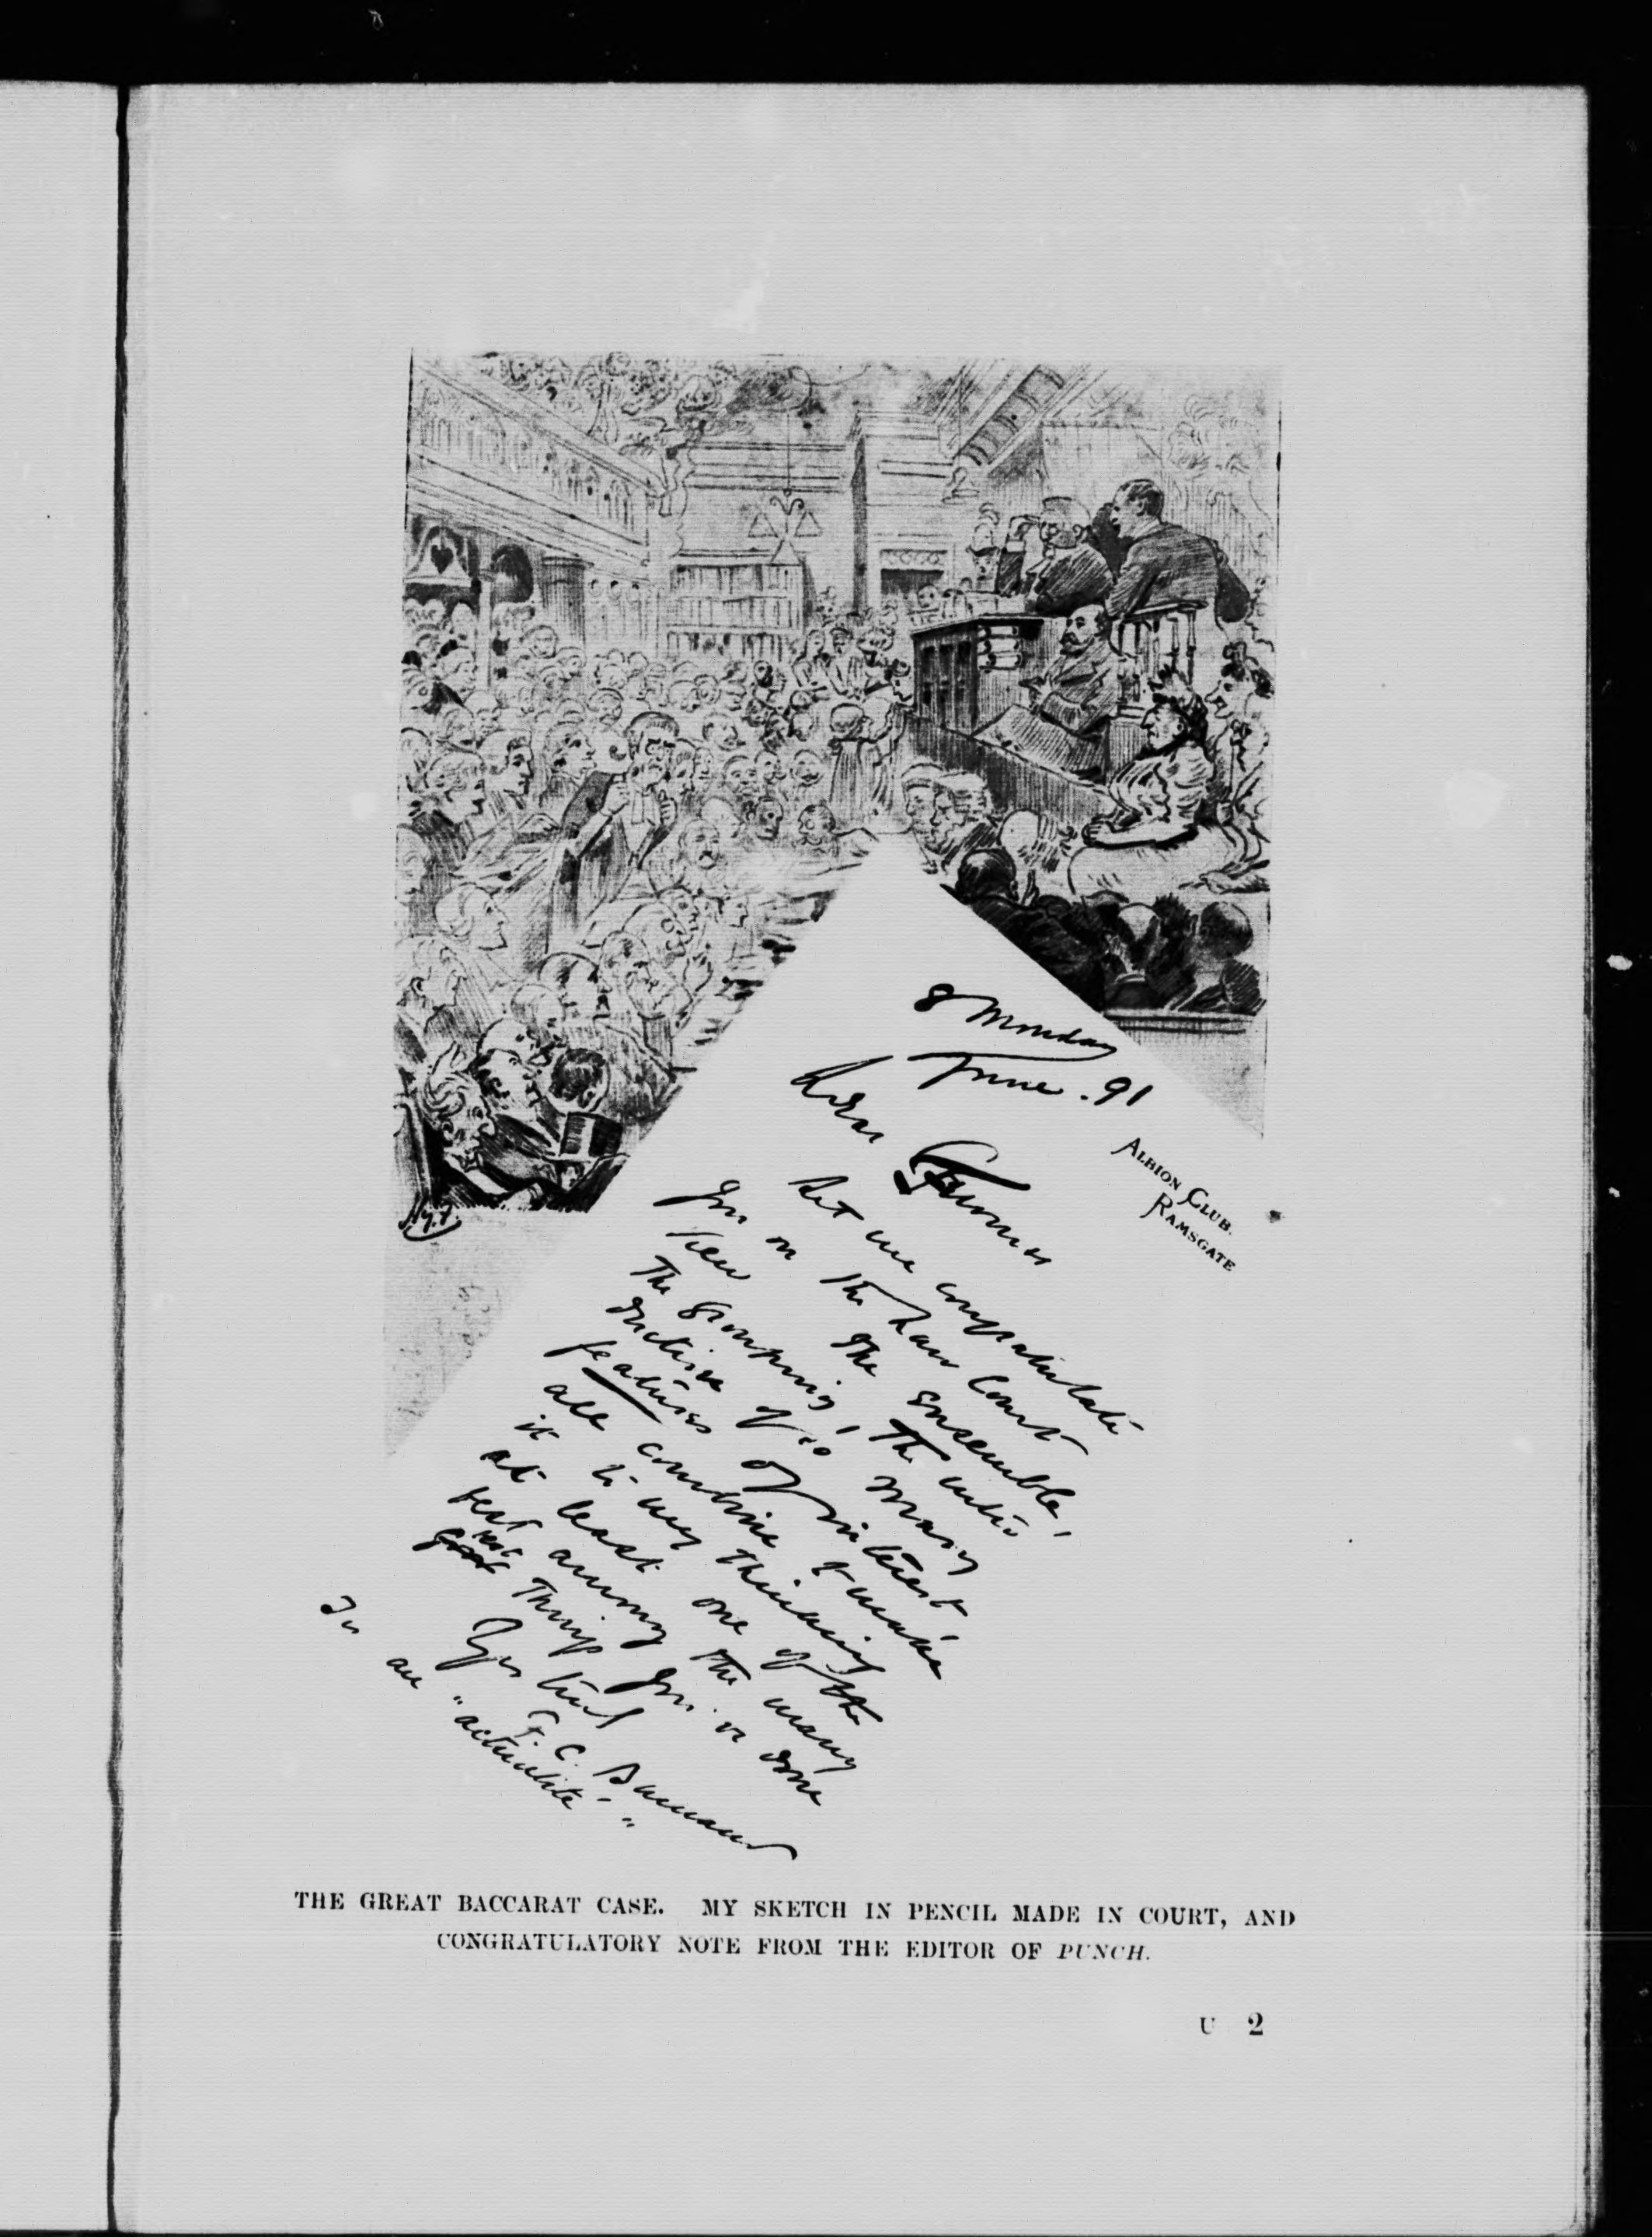 8 Monday
June . 91
ALBION CLUB.
RAMSGATE
Dear Furniss
Let me congratulate
you on the Law Court
View The ensemble,
The grouping, The
of so many
features of interest
all combine to make
it to my thinking
at least one of the
best among the many
best things you've done
Yrs truly
F. C. Burnand
In
an "actualité"
H.F.
THE GREAT BACCARAT CASE. MY SKETCH IN PENCIL MADE IN COURT, AND
CONGRATULATORY NOTE FROM THE EDITOR OF PUNCH.
U 2